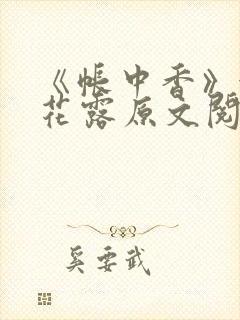 《帐中香》
花露原文阅
奚要武